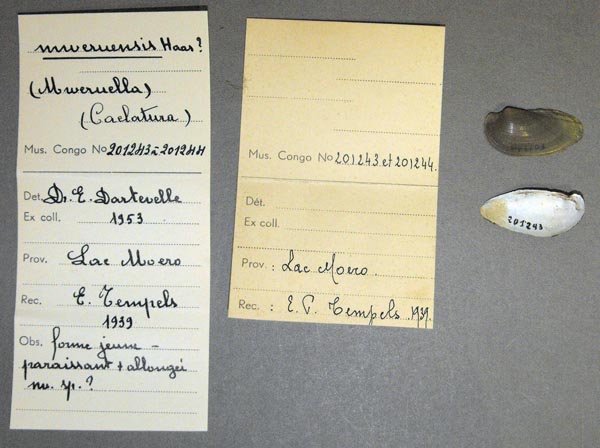 mweruensis Haas?
(Mweruella)
(Caelatura)
Mus. Congo No 201243 à 201244
Det. Dr. E. Dartevelle
Ex coll. 1953
Prov. Lac Moero
Rec. E. Tempels
1939
Obs. forme jeune -
paraissant + allongée
nv. sp.?
Mus. Congo No 201.243 et 201244.
Dét.
Ex coll.
Prov. : Lac Moëro.
Rec. : E. P. Tempels. 1939.
201243